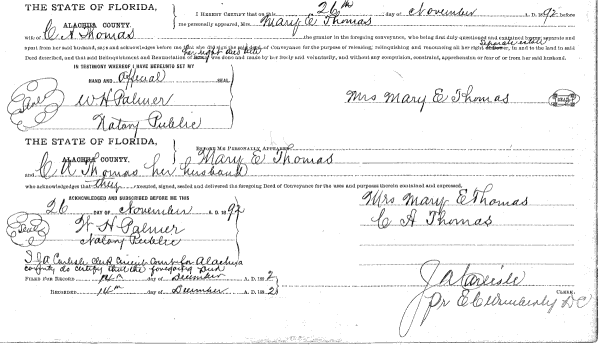 THE STATE OF FLORIDA,
ALACHUA COUNTY.
I HEREBY CERTIFY that on this 26th day of November A. D. 1892 before
me personally appeared, Mrs. Mary E Thomas
wife of C A Thomas the grantor in the foregoing conveyance, who being first duly questioned and examined separate and
apart from her said husband, says and acknowledges before me that she did sign the said deed of Conveyance for the purpose of releasing, relinquishing and renouncing all her right separate estate in and to the land in said
her right and title
Deed described, and that said Relinquishment and Renunciation of was done and made by her freely and voluntarily, and without any compulsion, constraint, apprehension or fear of or from her said husband.
IN TESTIMONY WHEREOF I HAVE HEREUNTO SET MY
HAND AND official SEAL
Seal
W H Palmer
Notary Public
Mrs Mary E Thomas SEAL
THE STATE OF FLORIDA,
ALACHUA COUNTY.
BEFORE ME PERSONALLY APPEARED Mary E Thomas
and C A Thomas her husband
who acknowledges that they executed, signed, sealed and delivered the foregoing Deed of Conveyance for the uses and purposes therein contained and expressed.
ACKNOWLEDGED AND SUBSCRIBED BEFORE ME THIS
26 DAY OF November A. D. 1892
Seal
W H Palmer
Notary Public
Mrs Mary E Thomas
C A Thomas
I J A Carlisle Clerk Circuit Court for Alachua
county do certify that the foregoing Deed
FILED FOR RECORD 14th day of December A. D. 1892
RECORDED 14th day of December A. D. 1892
J A Carlisle CLERK.
Pr E C Wimberly D C